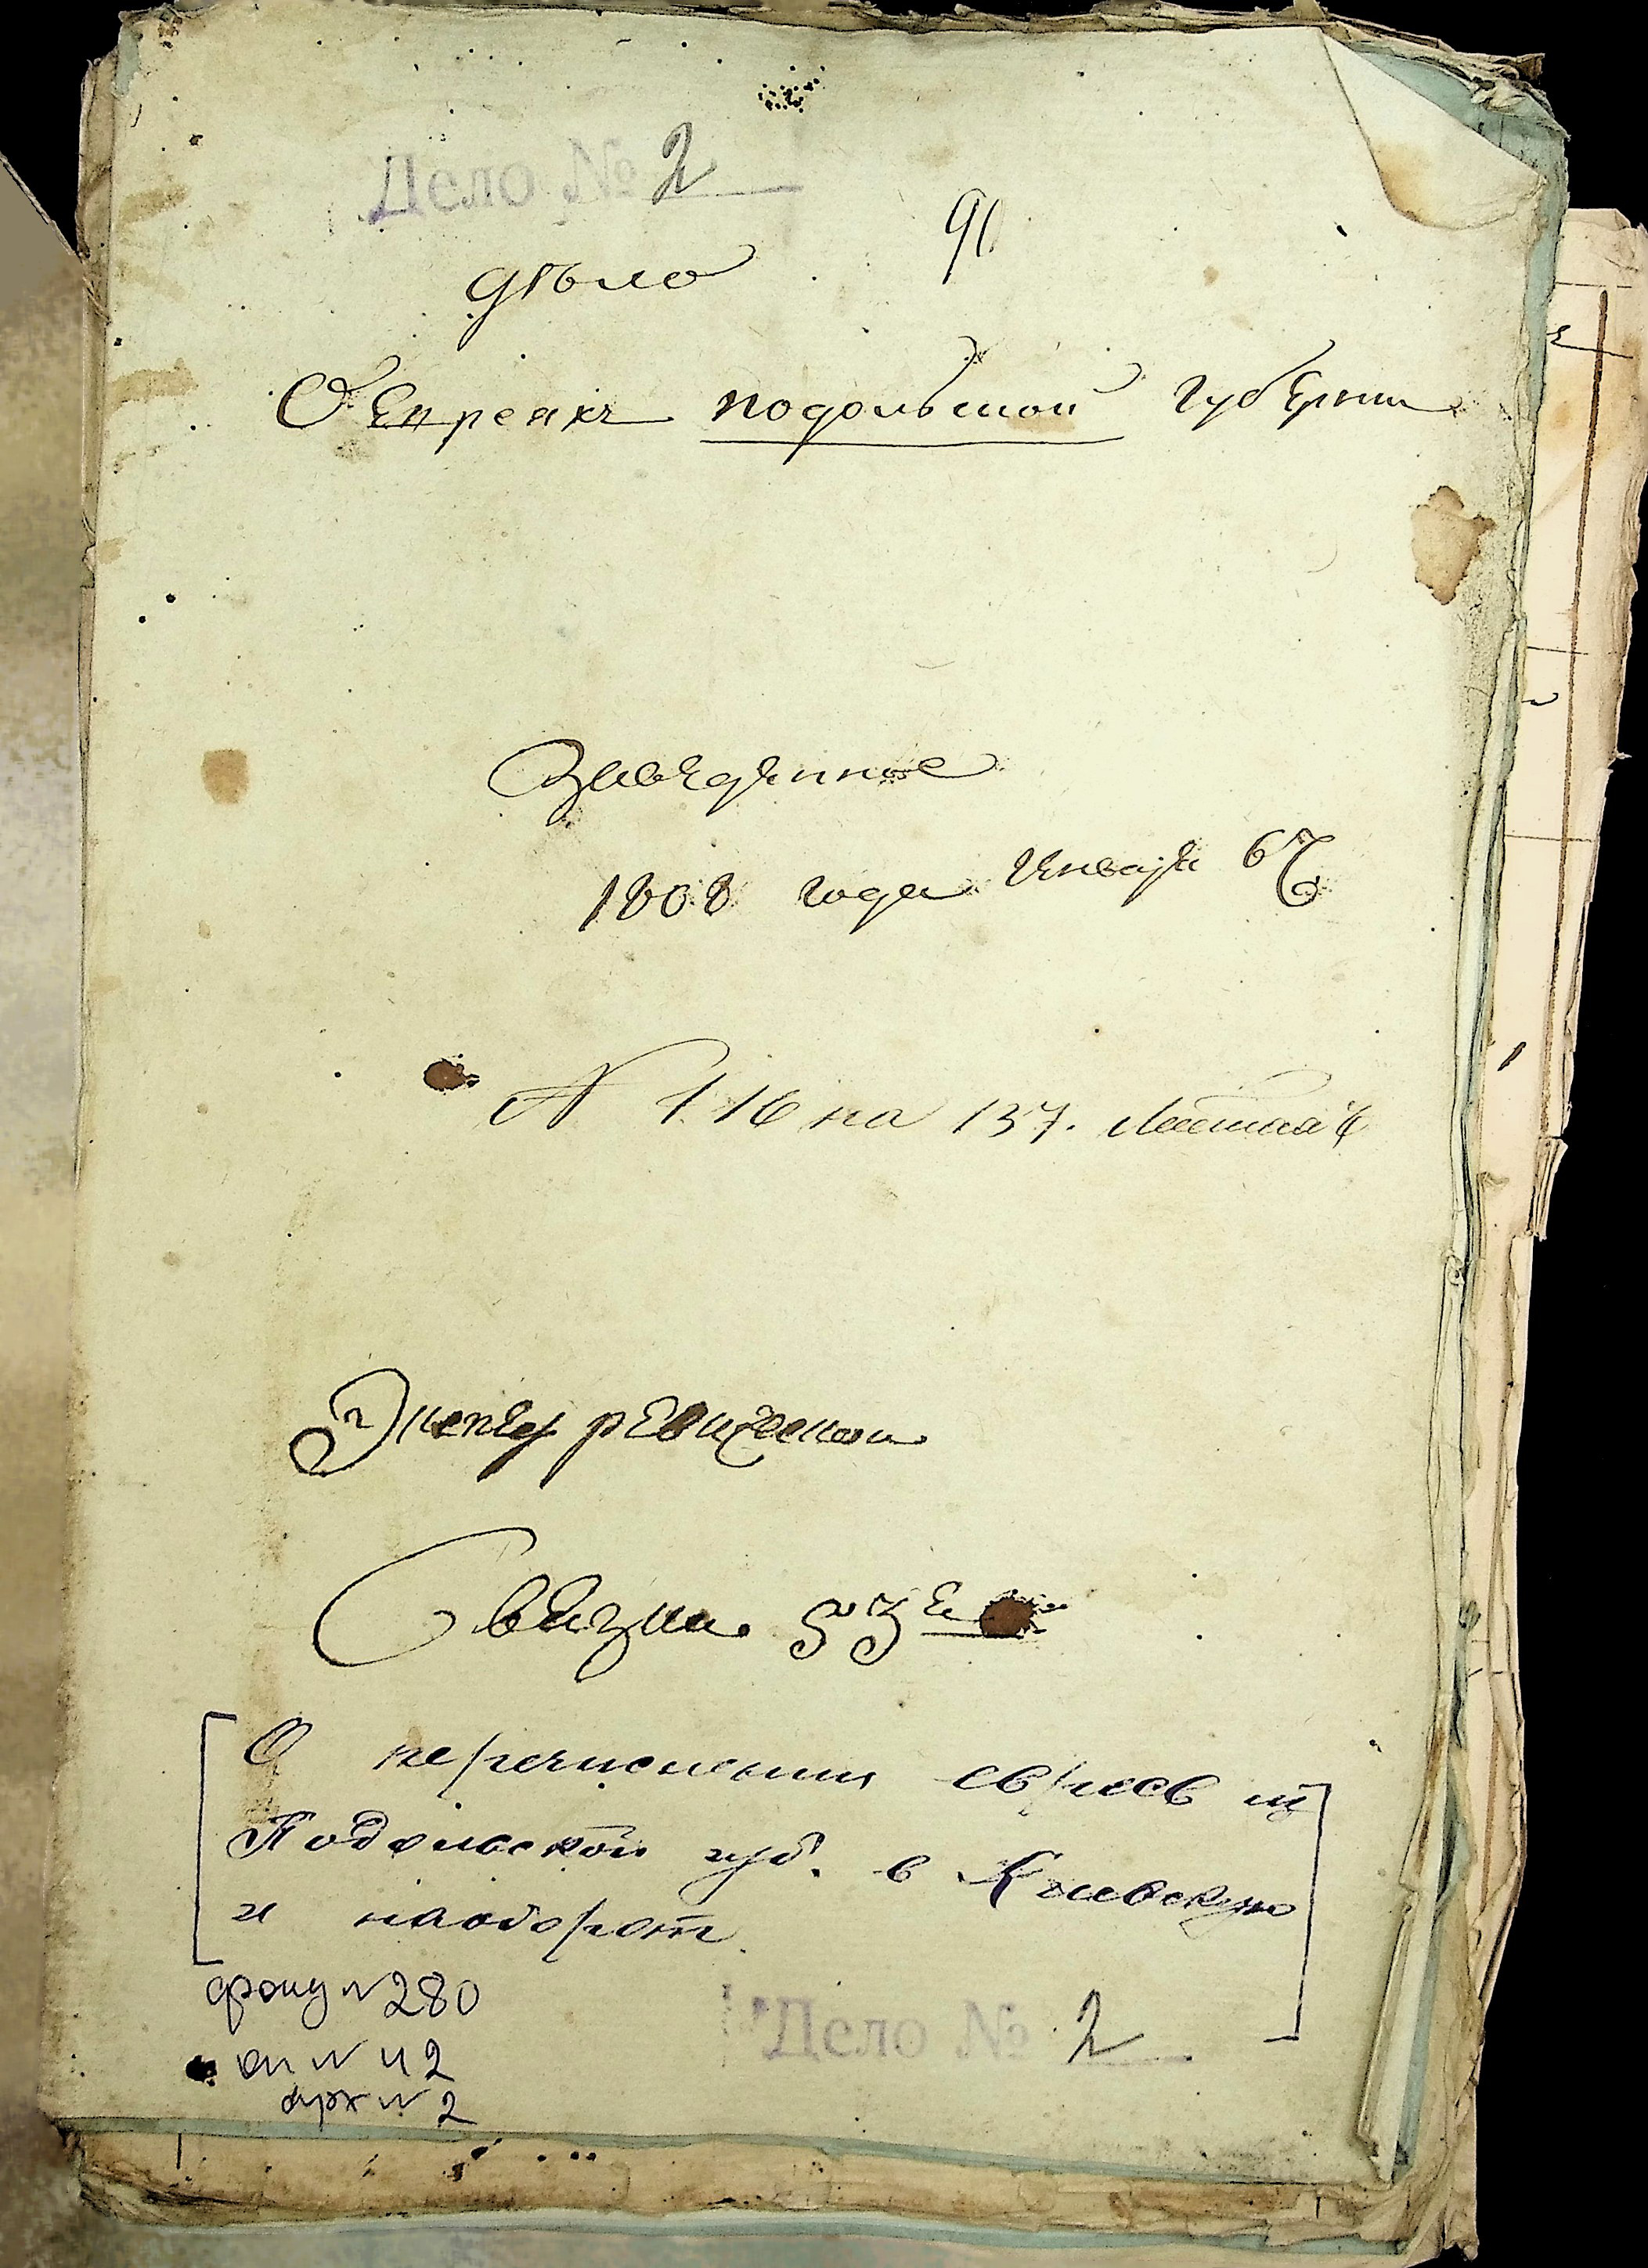 Дело № 2
90
дѣло
О Евреяхъ подольской губернии
Заведенное
1808 года Генваря 6
N 116 на 137. листахъ
Экспед ревизской
Связка 53
О перечислении евреев из
Подольской губ. в Киевскую
и наоборот
фонд N 280
оп N 42
арх N 2
Дело № 2